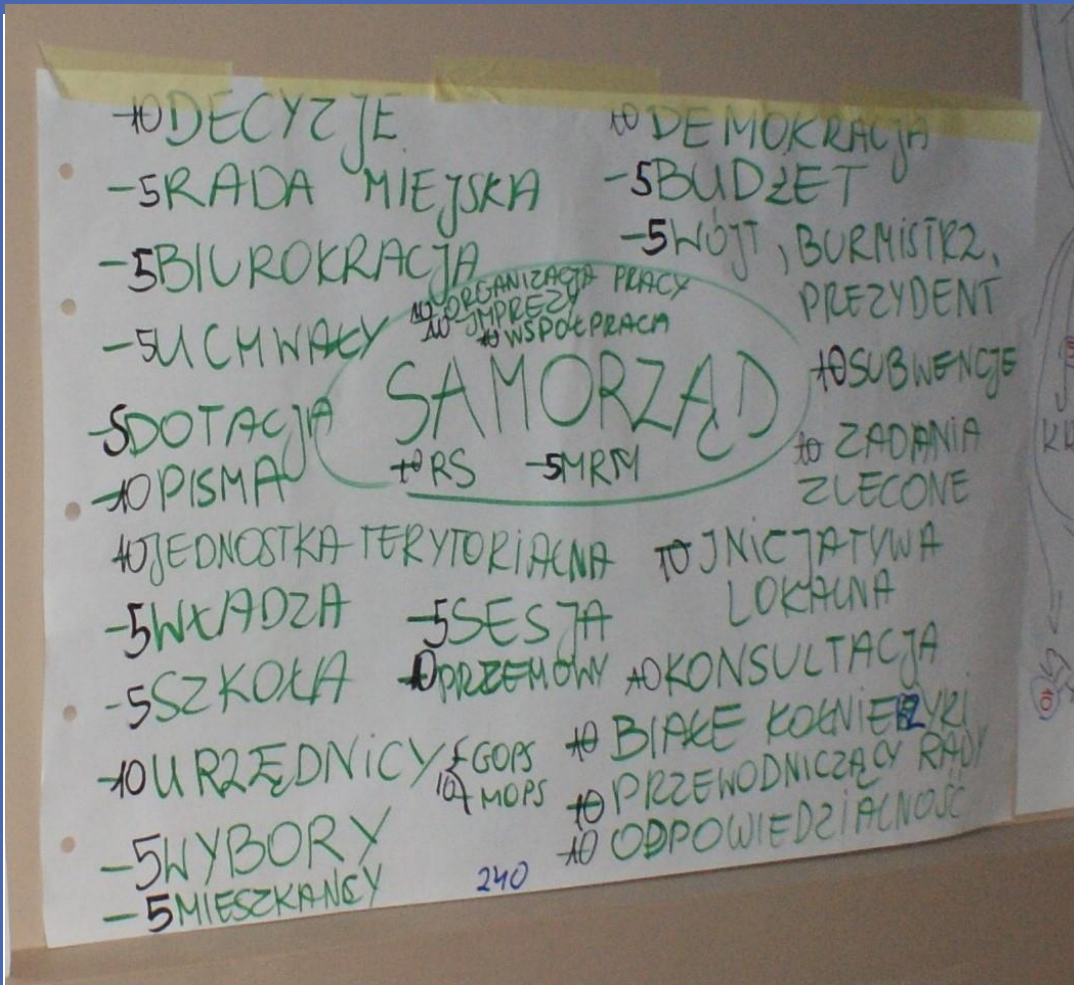 10 DECYZJE
-5 RADA MIEJSKA
-5 BIUROKRACJA
-5 UCHWAŁY
-5 DOTACJA
-10 PISMA
10 JEDNOSTKA TERYTORIALNA
-5 WŁADZA
-5 SZKOŁA
-10 URZĘDNICY
5 GOPS
10 MOPS
-5 WYBORY
-5 MIESZKAŃCY
10 ORGANIZACJA PRACY
10 IMPREZY
10 WSPÓŁPRACA
SAMORZĄD
10 RS -5 MRM
-5 SESJA
10 PRZEMOWY
240
10 DEMOKRACJA
-5 BUDŻET
-5 WÓJT, BURMISTRZ,
PREZYDENT
10 SUBWENCJE
10 ZADANIA
ZLECONE
10 INICJATYWA
LOKALNA
10 KONSULTACJA
10 BIAŁE KOŁNIERZYKI
10 PRZEWODNICZĄCY RADY
10 ODPOWIEDZIALNOŚĆ
10